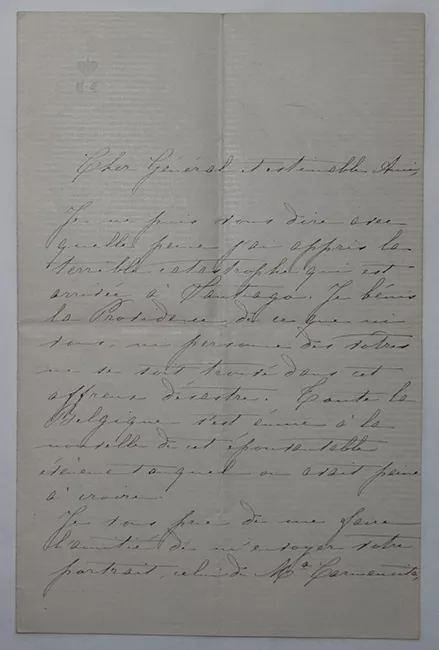 Cher Général et estimable Ami,
Je ne puis vous dire avec
quelle peine j'ai appris la
terrible catastrophe qui est
arrivée à Santiago. Je bénis
la Providence de ce que ni
vous, ni personne des vôtres
ne se soit trouvé dans cet
affreux désastre. Toute la
Belgique s'est émue à la
nouvelle de cet épouvantable
événement auquel on avait peine
à croire.
Je vous prie de me faire
l'amitié de m'envoyer votre
portrait, celui de Mᵃ Carmencita,